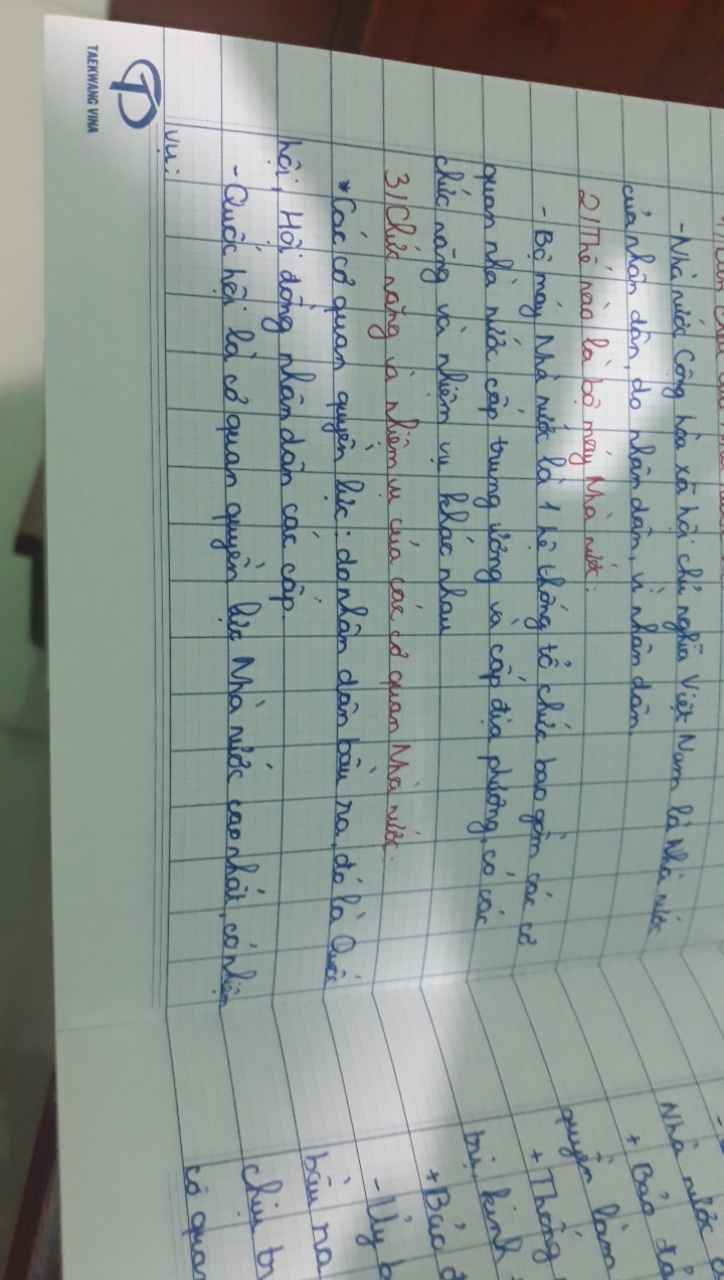 - Nhà nước Cộng hòa xã hội chủ nghĩa Việt Nam là Nhà nước
của nhân dân, do nhân dân, vì nhân dân.
2/ Thế nào là bộ máy Nhà nước:
- Bộ máy Nhà nước là 1 hệ thống tổ chức bao gồm các cơ
quan nhà nước cấp trung ương và cấp địa phương, có các
chức năng và nhiệm vụ khác nhau
3/ Chức năng và nhiệm vụ của các cơ quan Nhà nước.
* Các cơ quan quyền lực: do nhân dân bầu ra, đó là Quốc
hội, Hội đồng nhân dân các cấp.
- Quốc hội là cơ quan quyền lực Nhà nước cao nhất, có nhiệm
vụ:
TAEKWANG VINA
Nhà nước
+ Bảo
quyền làm
+ Thống
trị, kinh
+ Bảo
- Ủy
bầu ra
chịu
cơ